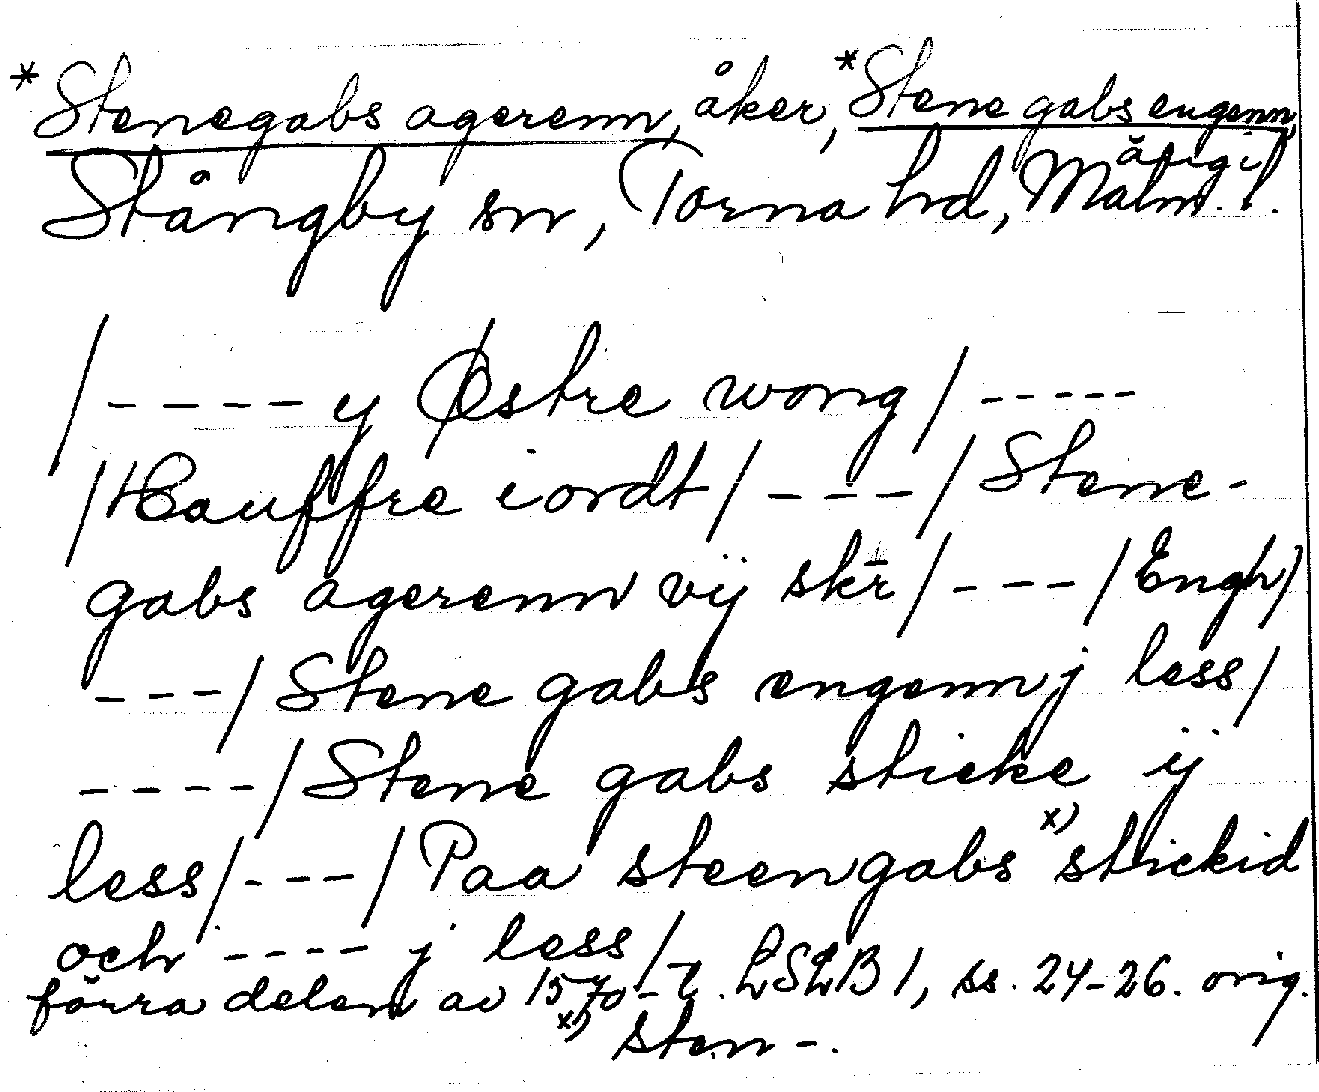 *Stenegabs agerenn, åker, *Stene gabs engenn,
äng i
Stångby sn, Torna hd, Malm. l.
/ - - - - y Østre wong / - - - - -
/ Hauffre iordt / - - - / Stene-
gabs agerenn vij skr / - - - / Engh /
- - - / Stene gabs engenn j less /
- - - - / Stene gabs sticke ij
less / - - - / Paa steengabs x) stickid
och - - - - j less / - LSLB 1, ss. 24-26. orig.
förra delen av 1570-t.
x) sten -.